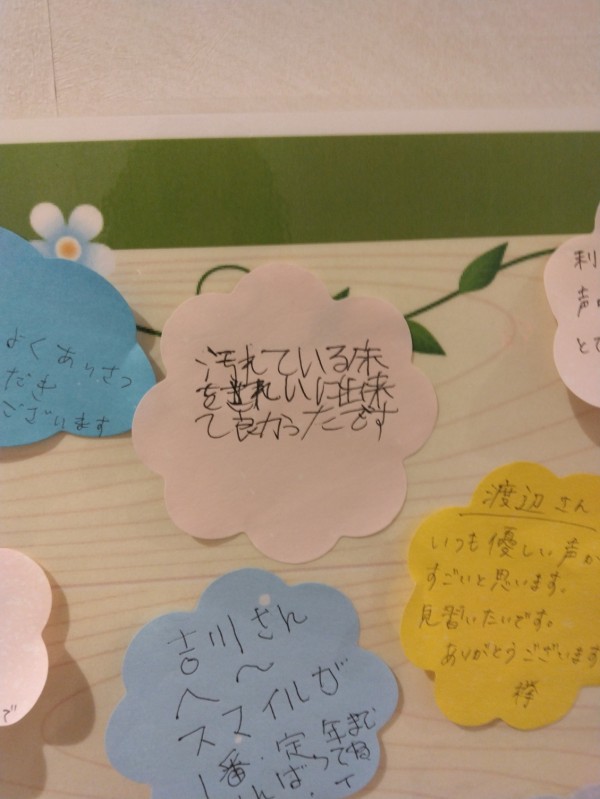 よくあいさつ
だき
ございます
汚れている床
をきれいに出来
て良かったです
利
声
とて
渡辺さん
いつも優しい声か
すごいと思います。
見習いたいです。
ありがとうございます
欅
吉川さん
へ〜
スマイルが
1番.定年まで
がんばってね
で